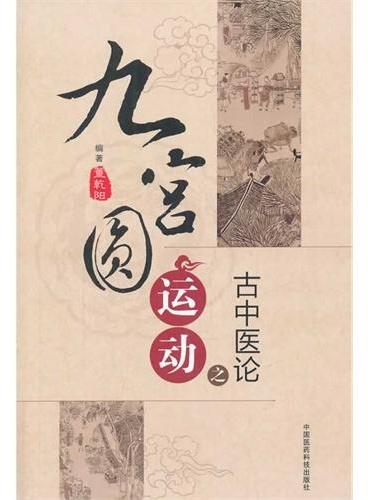 九宫圆
运动
之
古中医论
编著
董乾阳
中国医药科技出版社